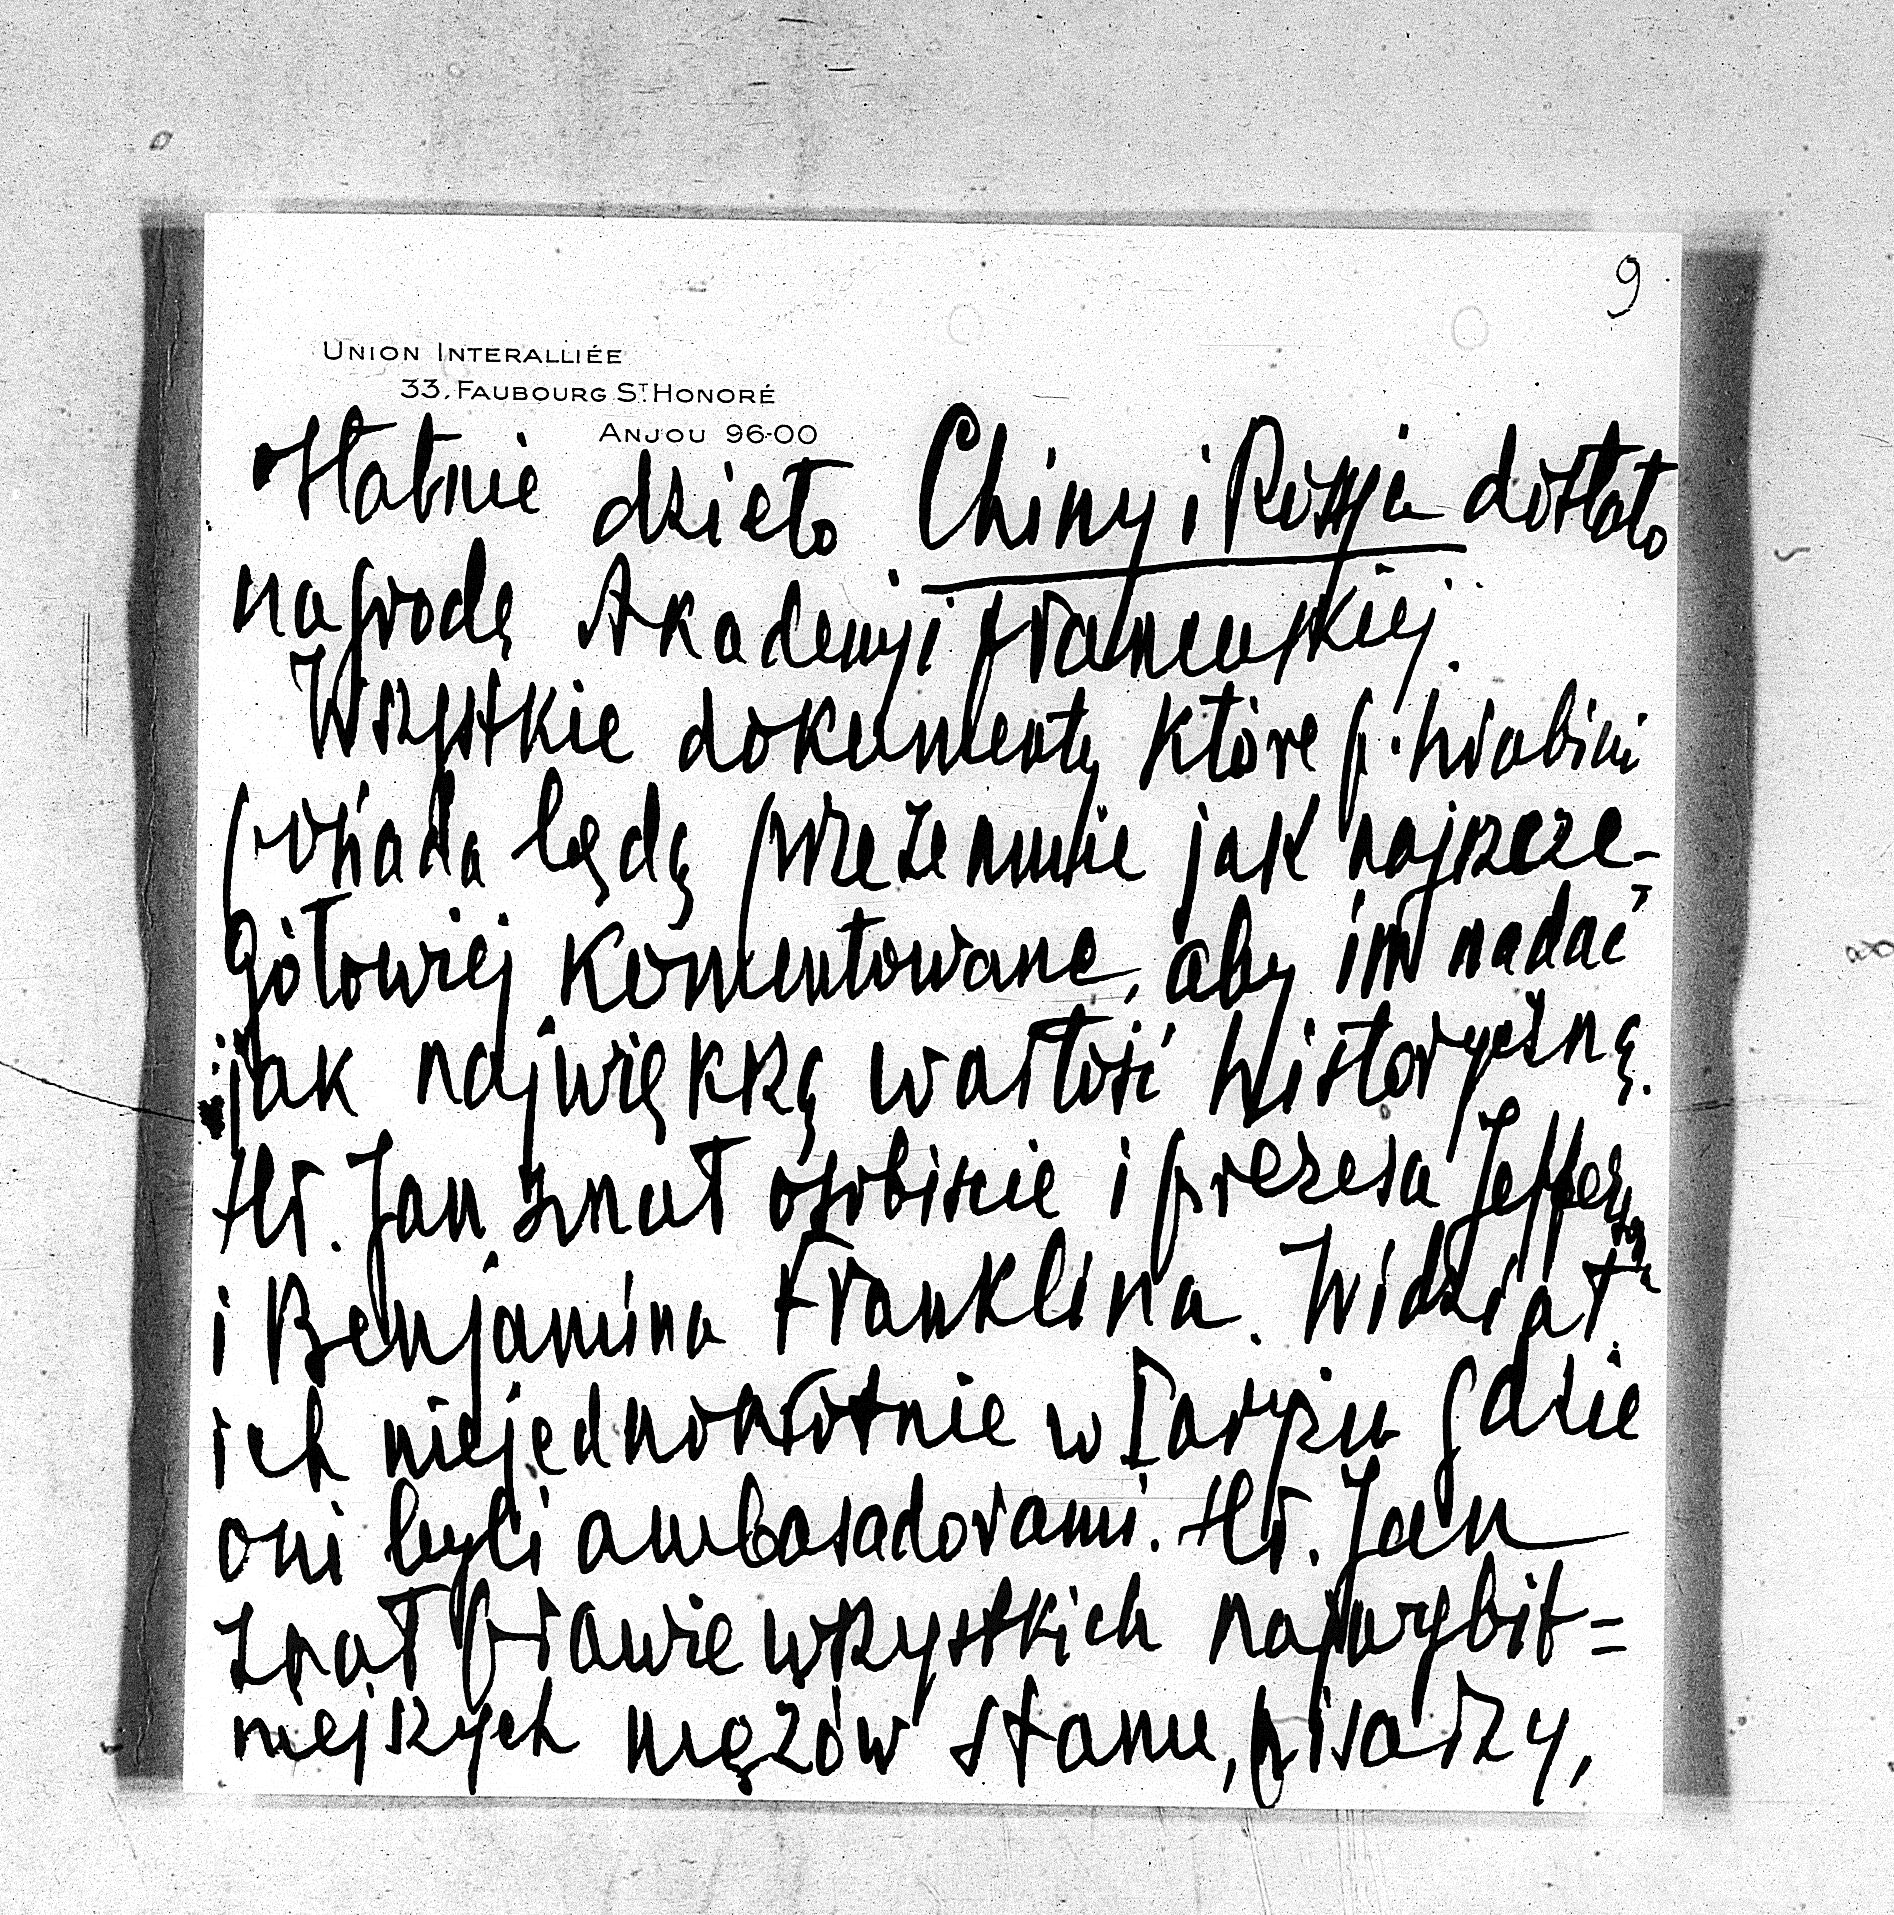 9
UNION INTERALLIÉE
33, FAUBOURG ST. HONORÉ
ANJOU 96-00
ostatnie dzieło Chiny i Rosja dostało
nagrodę Akademji francuskiej.
Wszystkie dokumenty które p. hrabini
posiada będą przezemnie jak najszcze-
gółowiej komentowane, aby im nadać
jak największą wartość historyczną.
Hr. Jan znał osobiście i prezesa Jeffersona
i Benjamina Franklina. Widział
ich niejednokrotnie w Paryżu gdzie
oni byli ambasadorami. Hr. Jan
znał prawie wszystkich najwybit=
niejszych mężów stanu, pisarzy,